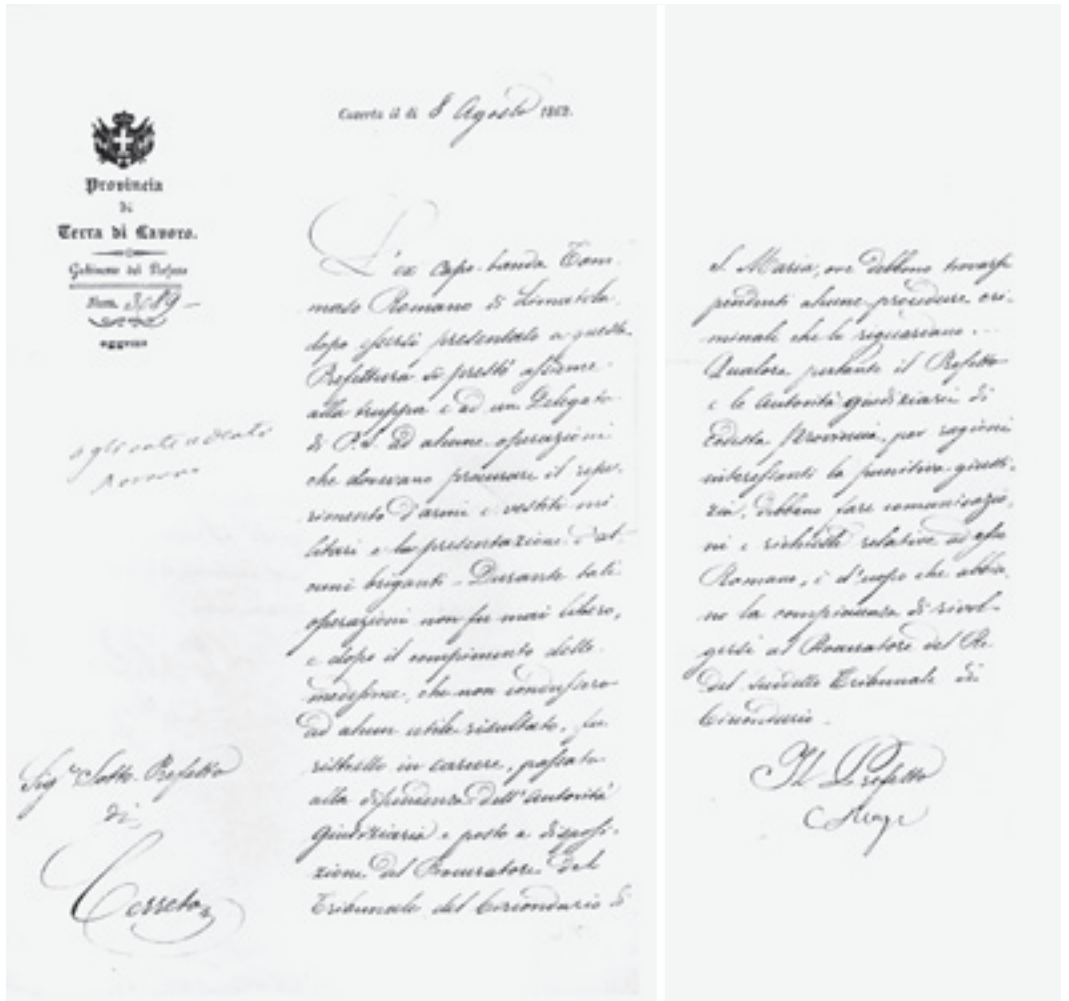 Caserta il dì 8 Agosto 1862.
Provincia
di
Terra di Lavoro.
Gabinetto del Prefetto
Num. 3089
oggetto
agli atti
L'ex Capo-banda Tom-
maso Romano di Limatola
dopo essersi presentato a questa
Prefettura si prestò assieme
alla truppa e ad un Delegato
di P.S. ad alcune operazioni
che dovevano procurare il repe-
rimento d'armi e vestiti mi-
litari e la presentazione d'al-
cuni briganti - Durante tali
operazioni non fu mai libero,
e dopo il compimento delle
medesime, che non condussero
ad alcun utile risultato, fu
ristretto in carcere, passato
alla dipendenza dell'Autorità
Giudiziaria e posto a disposi-
zione del Procuratore del
Tribunale del Circondario di
Sigr Sotto-Prefetto
di
Cerreto
S. Maria, ove debbono trovarsi
pendenti alcune procedure cri-
minali che lo riguardano. -
Qualora pertanto il Prefetto
e le Autorità giudiziarie di
codesta Provincia, per ragioni
interessanti la punitiva giusti-
zia, debbano fare comunicazio-
ni e richieste relative ad esso
Romano, è d'uopo che abbia-
no la compiacenza di rivol-
gersi al Procuratore del Re
del suddetto Tribunale di
Circondario.
Il Prefetto